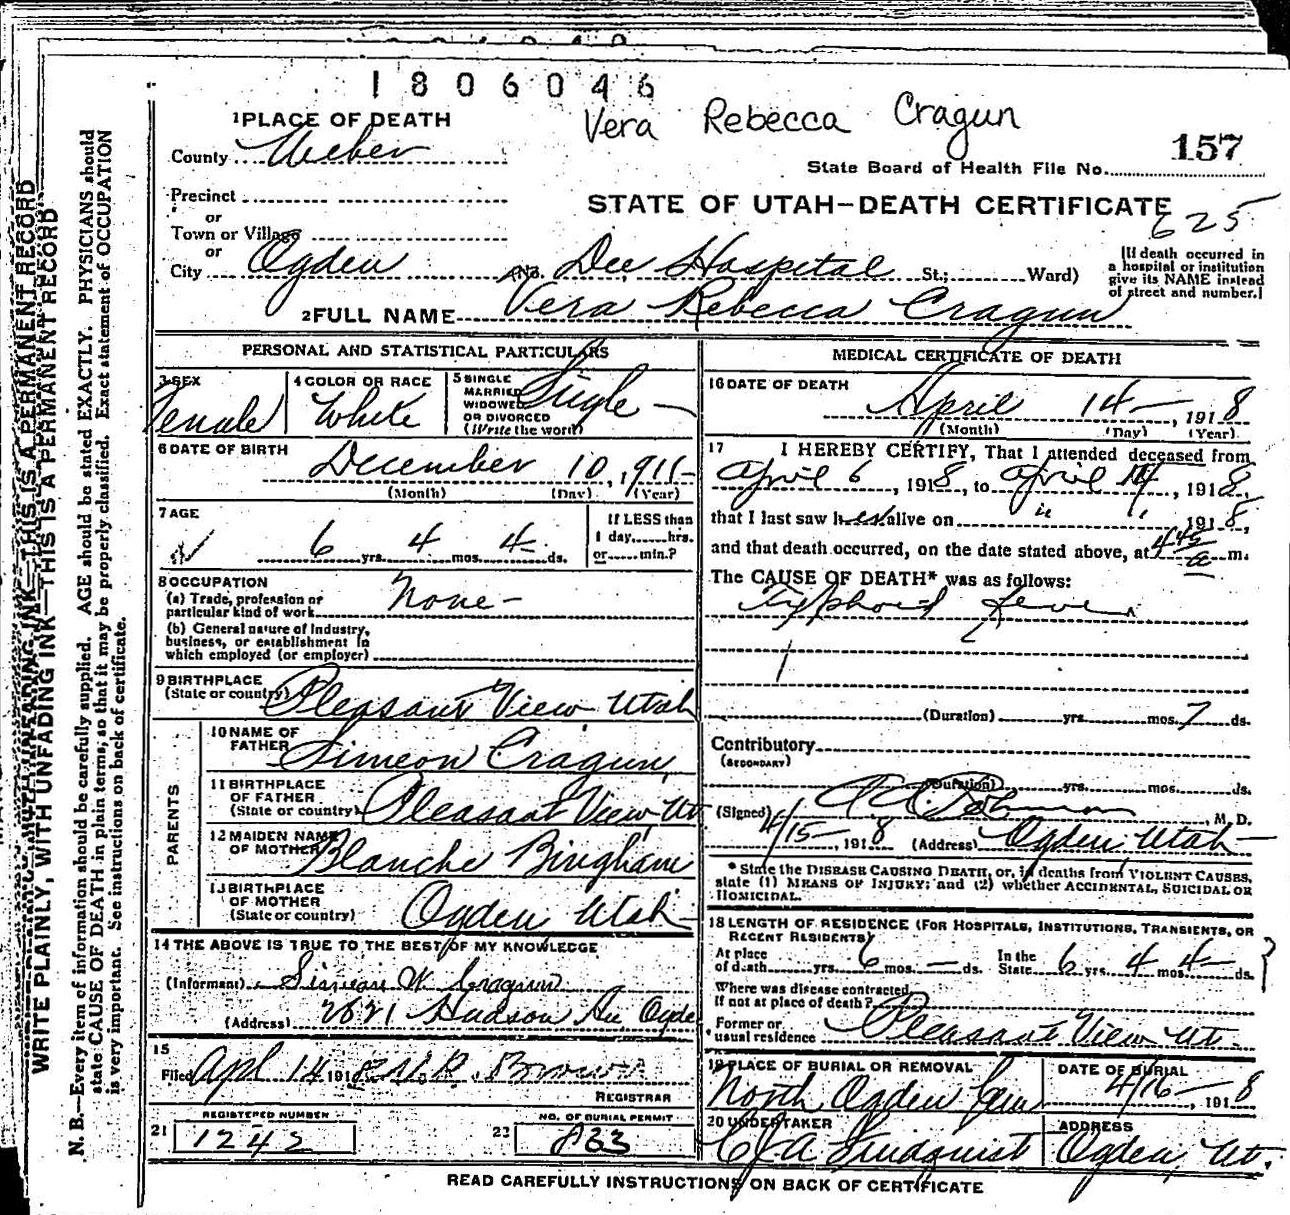 1806046
Vera Rebecca Cragun
1 PLACE OF DEATH
County Weber
State Board of Health File No. 157
Precinct
or
Town or Village
or
City Ogden
STATE OF UTAH—DEATH CERTIFICATE
625
(No. Dee Hospital St.; Ward)
[If death occurred in
a hospital or institution
give its NAME instead
of street and number.]
2 FULL NAME Vera Rebecca Cragun
PERSONAL AND STATISTICAL PARTICULARS
3 SEX
Female
4 COLOR OR RACE
White
5 SINGLE
MARRIED
WIDOWED
OR DIVORCED
(Write the word)
Single
6 DATE OF BIRTH
December 10, 1911
(Month) (Day) (Year)
7 AGE
6 yrs. 4 mos. 4 ds.
If LESS than
1 day, hrs.
or min.?
8 OCCUPATION
(a) Trade, profession or
particular kind of work None
(b) General nature of Industry,
business, or establishment in
which employed (or employer)
9 BIRTHPLACE
(State or country) Pleasant View Utah
PARENTS
10 NAME OF
FATHER Simeon Cragun
11 BIRTHPLACE
OF FATHER
(State or country) Pleasant View, Ut
12 MAIDEN NAME
OF MOTHER Blanche Bingham
13 BIRTHPLACE
OF MOTHER
(State or country) Ogden Utah
14 THE ABOVE IS TRUE TO THE BEST OF MY KNOWLEDGE
(Informant) Simeon W. Cragun
(Address) 2621 Hudson Av, Ogde
15
Filed Apl 14, 1918 Brown
REGISTRAR
REGISTERED NUMBER
21 1242
NO. OF BURIAL PERMIT
23 833
MEDICAL CERTIFICATE OF DEATH
16 DATE OF DEATH
April 14, 1918
(Month) (Day) (Year)
17 I HEREBY CERTIFY, That I attended deceased from
April 6, 1918, to April 14, 1918,
that I last saw her alive on " ", 1918,
and that death occurred, on the date stated above, at 4 45 a m.
The CAUSE OF DEATH* was as follows:
Typhoid Fever
1
(Duration) yrs. mos. 7 ds.
Contributory
(SECONDARY)
(Duration) yrs. mos. ds.
(Signed) , M. D.
4/15, 1918 (Address) Ogden, Utah
* State the DISEASE CAUSING DEATH, or, in deaths from VIOLENT CAUSES,
state (1) MEANS OF INJURY; and (2) whether ACCIDENTAL, SUICIDAL OR
HOMICIDAL.
18 LENGTH OF RESIDENCE (FOR HOSPITALS, INSTITUTIONS, TRANSIENTS, OR
RECENT RESIDENTS)
At place
of death yrs. 6 mos. — ds.
In the
State 6 yrs. 4 mos. 4 ds.
Where was disease contracted
If not at place of death?
Former or
usual residence Pleasant View Ut.
19 PLACE OF BURIAL OR REMOVAL
North Ogden Cem
DATE OF BURIAL
4/16, 1918
20 UNDERTAKER
Lindquist
ADDRESS
Ogden, Ut.
READ CAREFULLY INSTRUCTIONS ON BACK OF CERTIFICATE
WRITE PLAINLY, WITH UNFADING INK—THIS IS A PERMANENT RECORD
N. B.—Every item of information should be carefully supplied. AGE should be stated EXACTLY. PHYSICIANS should
state CAUSE OF DEATH in plain terms, so that it may be properly classified. Exact statement of OCCUPATION
is very important. See instructions on back of certificate.